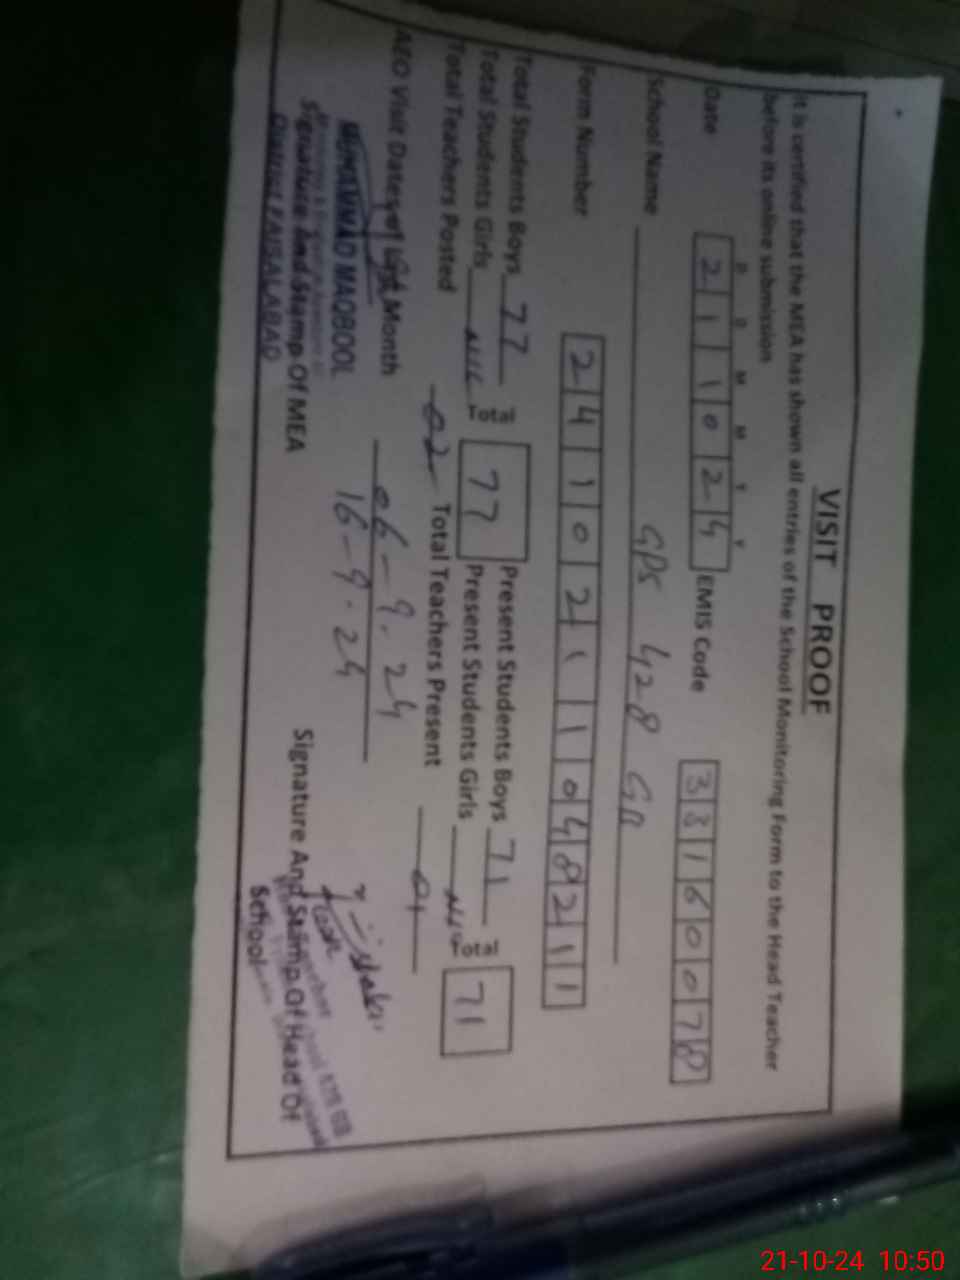 VISIT PROOF
It is certified that the MEA has shown all entries of the School Monitoring Form to the Head Teacher
before its online submission
D D M M Y Y
Date 2 1 1 0 2 4 EMIS Code 3 3 1 6 0 0 7 8
School Name GPS 428 GB
Form Number 2 4 1 0 2 1 1 0 4 8 2 1 1
Total Students Boys 77 Present Students Boys 71
Total Students Girls Nil Total 77 Present Students Girls Nil Total 71
Total Teachers Posted 02 Total Teachers Present 01
AEO Visit Dates of Last Month 06-9-24
16-9-24
MUHAMMAD MAQBOOL
Signature And Stamp Of MEA
District FAISALABAD
Signature And Stamp Of Head Of
School
21-10-24 10:50